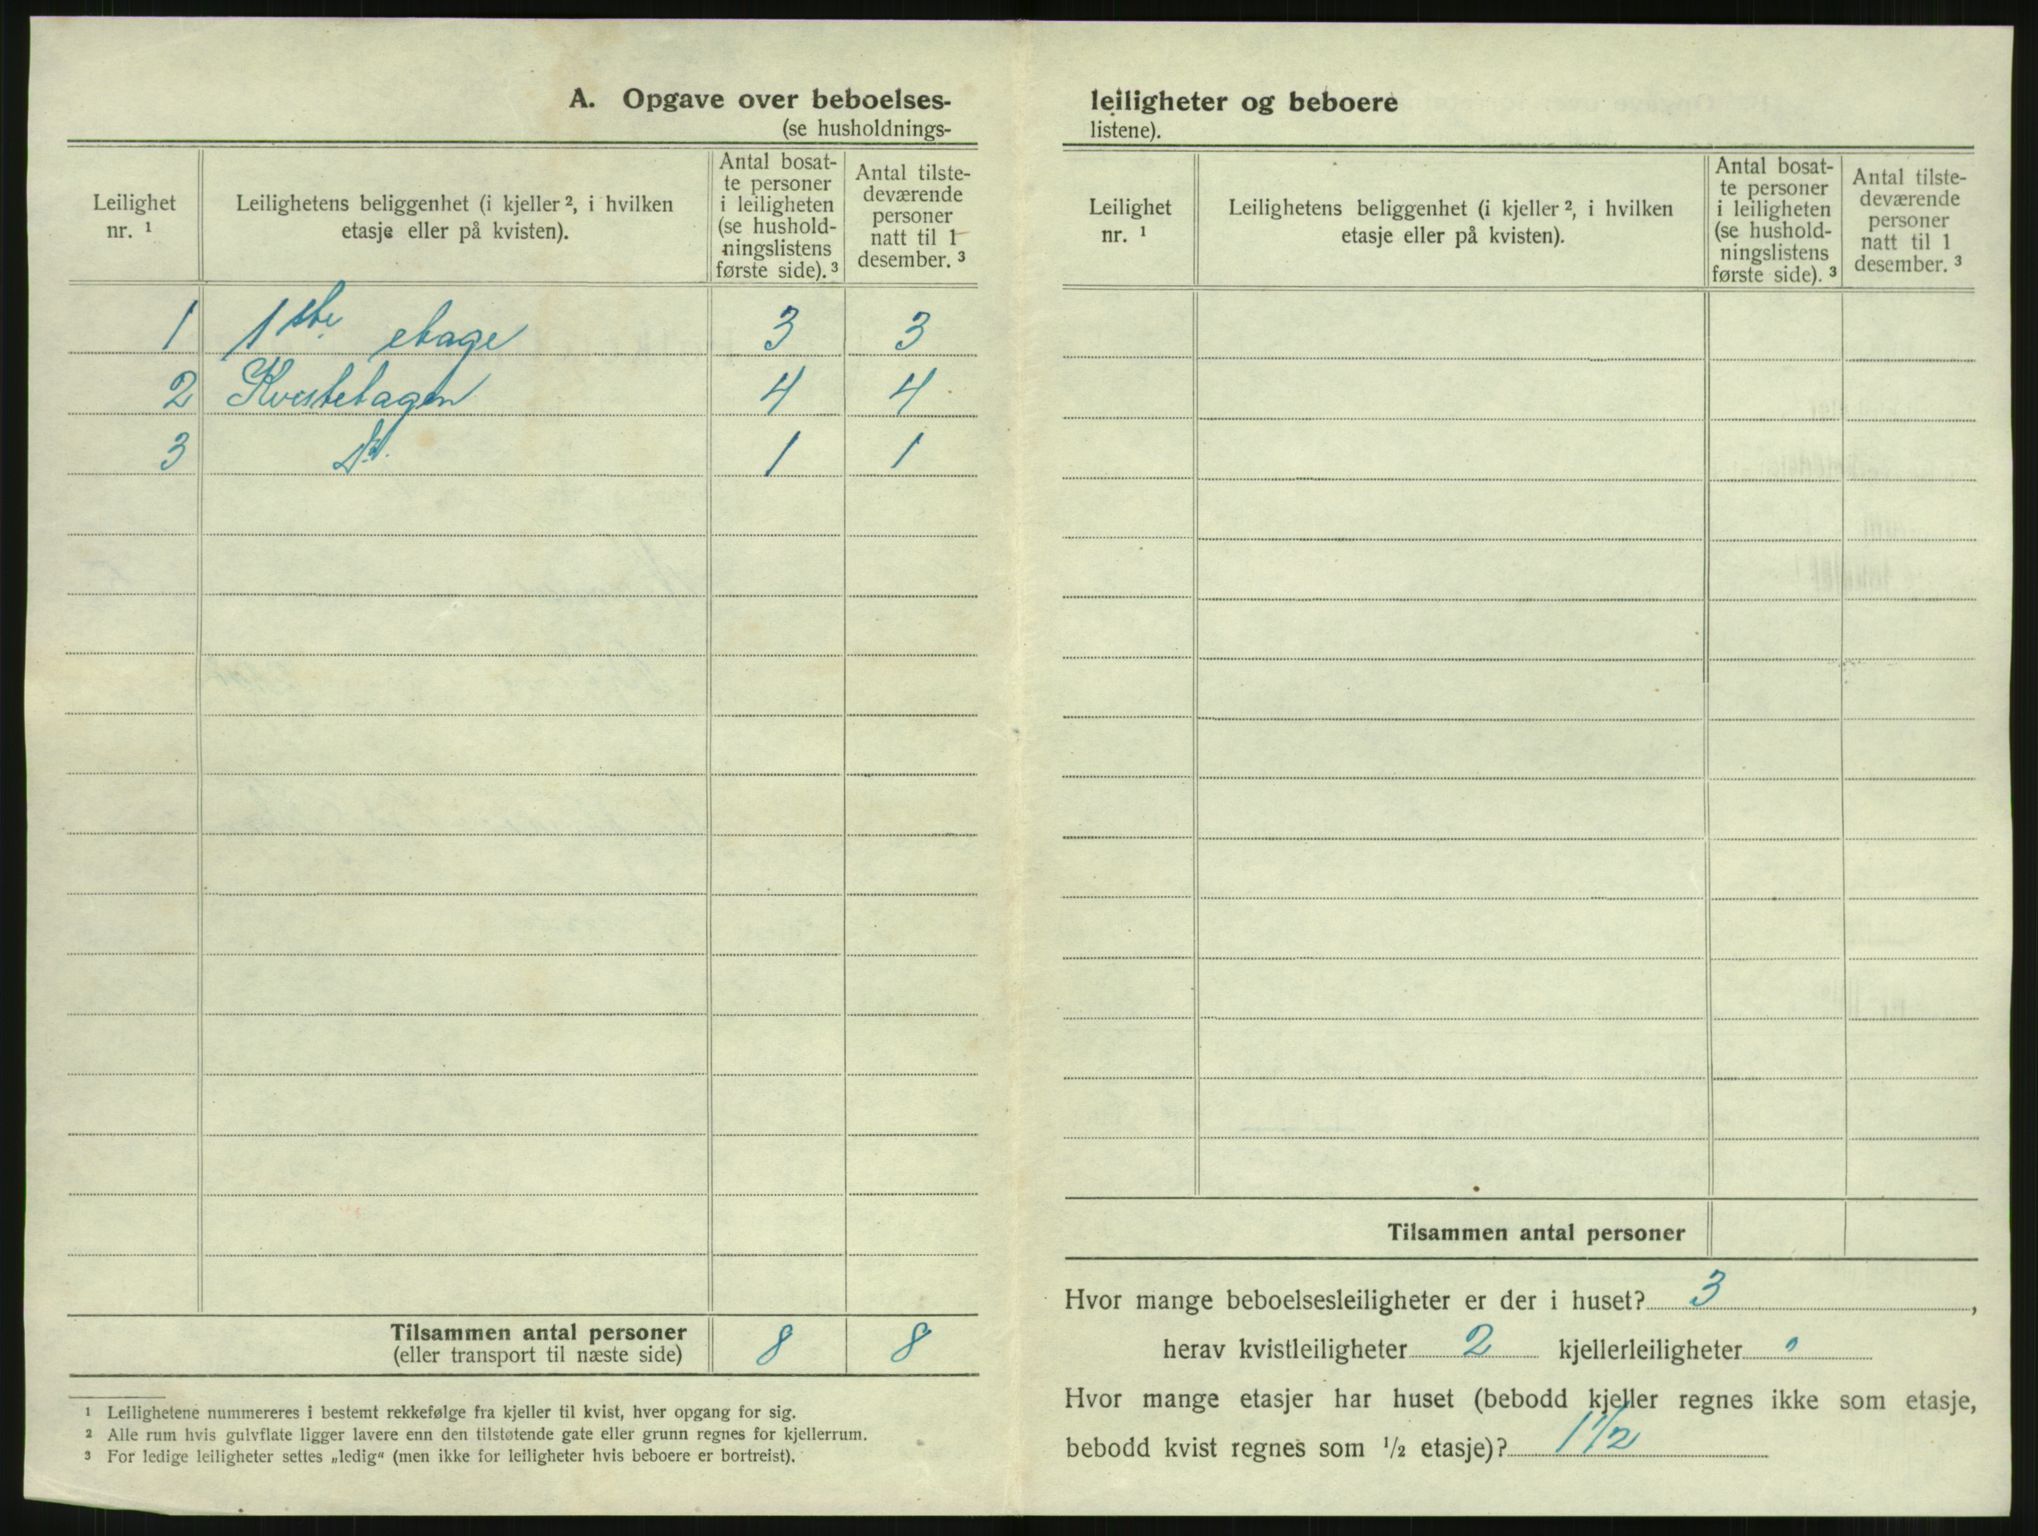 A. Opgave over beboelses-
(se husholdnings-
Leilighet
nr. 1
Leilighetens beliggenhet (i kjeller 2, i hvilken
etasje eller på kvisten).
Antal bosat-
te personer
i leiligheten
(se hushold-
ningslistens
første side). 3
Antal tilste-
deværende
personer
natt til 1
desember. 3
1 1ste etage 3 3
2 Kvistetagen 4 4
3 Do. 1 1
Tilsammen antal personer
(eller transport til næste side) 8 8
1 Leilighetene nummereres i bestemt rekkefølge fra kjeller til kvist, hver opgang for sig.
2 Alle rum hvis gulvflate ligger lavere enn den tilstøtende gate eller grunn regnes for kjellerrum.
3 For ledige leiligheter settes „ledig“ (men ikke for leiligheter hvis beboere er bortreist).
leiligheter og beboere
listene).
Leilighet
nr. 1
Leilighetens beliggenhet (i kjeller 2, i hvilken
etasje eller på kvisten).
Antal bosat-
te personer
i leiligheten
(se hushold-
ningslistens
første side). 3
Antal tilste-
deværende
personer
natt til 1
desember. 3
Tilsammen antal personer
Hvor mange beboelsesleiligheter er der i huset? 3,
herav kvistleiligheter 2 kjellerleiligheter "
Hvor mange etasjer har huset (bebodd kjeller regnes ikke som etasje,
bebodd kvist regnes som 1/2 etasje)? 1 1/2